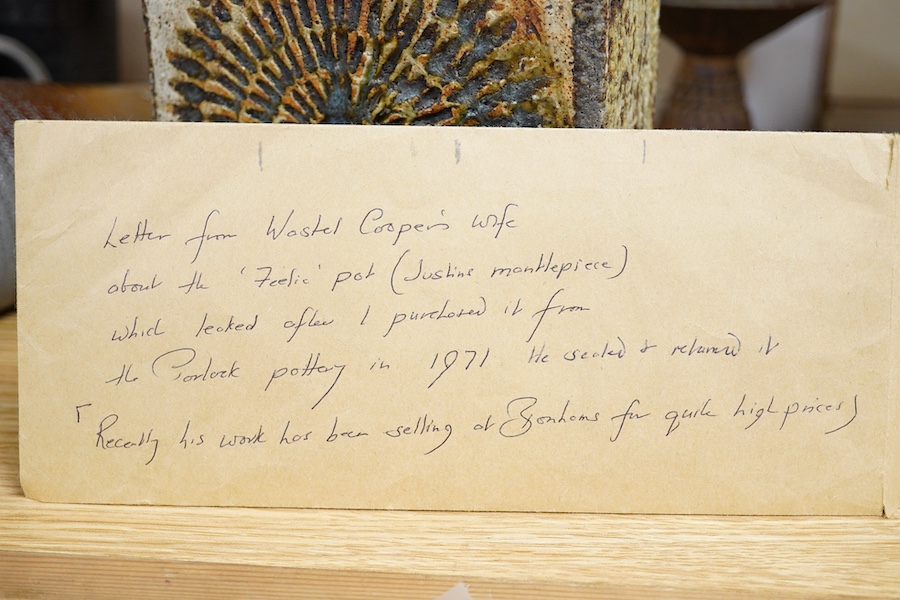 Letter from Wastel Cooper's wife
about the 'Zeelie' pot (Justins mantlepiece)
which leaked after I purchased it from
the Porlock pottery in 1971 He sealed & returned it
[Recently his work has been selling at Bonhams for quite high prices]